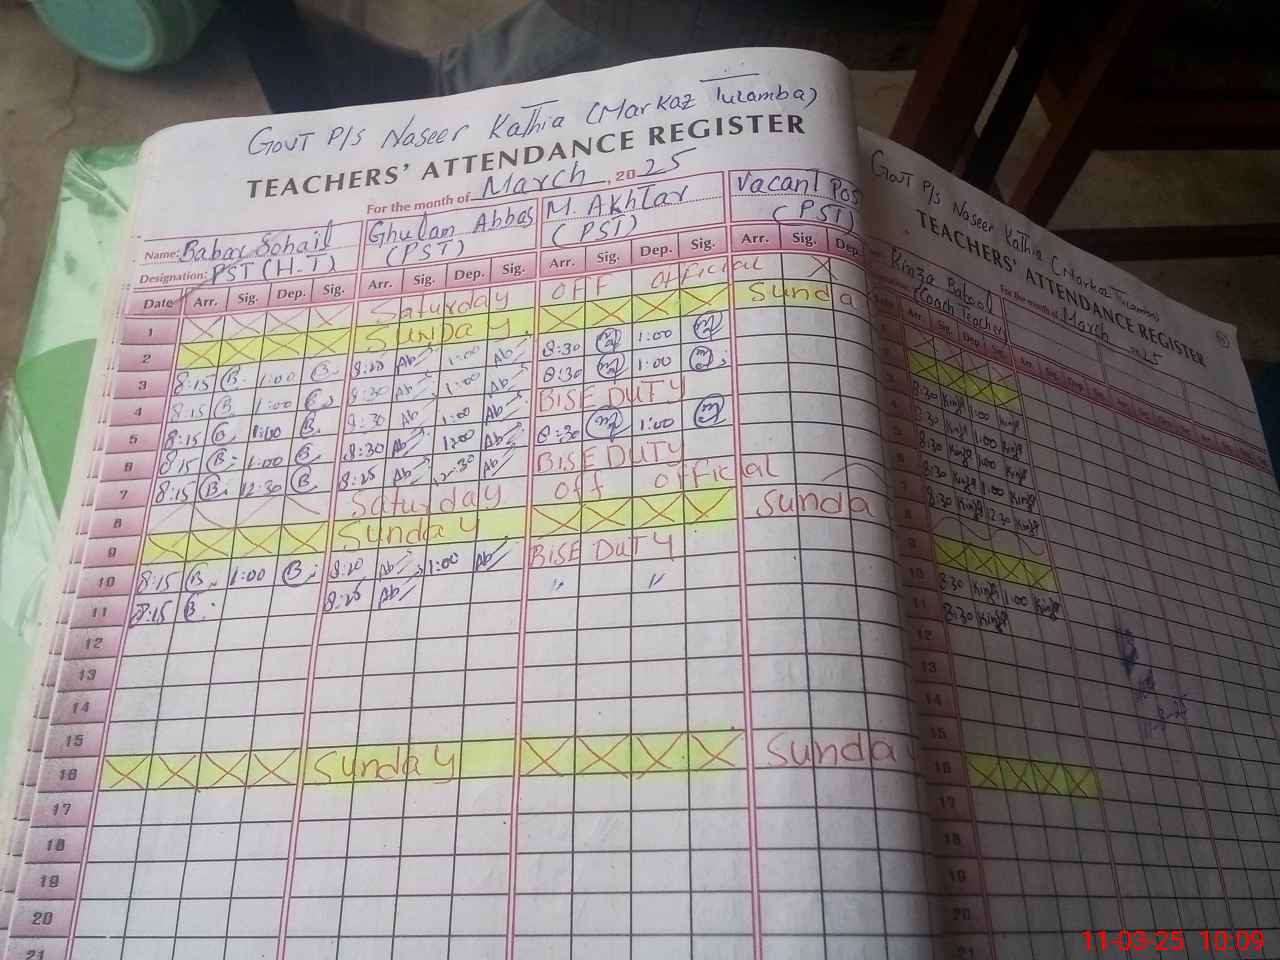 Govt P/s Naseer Kathia (Markaz Tulamba)
TEACHERS' ATTENDANCE REGISTER
For the month of March, 2025
Name: Babar Sohail Ghulam Abbas M. Akhtar Vacant Pos
Designation: PST (H.T) (PST) (PST) (PST)
Date Arr. Sig. Dep. Sig. Arr. Sig. Dep. Sig. Arr. Sig. Dep. Sig. Arr. Sig. Dep
1 Saturday OFF Official
2 Sunday Sunda
3 8:15 B. 1:00 B. 8:25 Ab 1:00 Ab 8:30 1:00
4 8:15 B 1:00 B 8:30 Ab 1:00 Ab 8:30 1:00
5 8:15 B 1:00 B. 8:30 Ab 1:00 Ab BISE DUTY
6 8:15 B. 1:00 B. 8:30 Ab 1:00 Ab 8:30 1:00
7 8:15 B. 12:30 B. 8:25 Ab 12:30 Ab BISE DUTY
8 Saturday Off official
9 Sunday Sunda
10 8:15 B. 1:00 B. 8:20 Ab 1:00 Ab BISE DUTY
11 8:15 B. 8:25 Ab " "
12
13
14
15
16 Sunday Sunda
17
18
19
20
21
Govt P/s Naseer Kathia (Markaz Tulamba)
TEACHERS' ATTENDANCE REGISTER
For the month of March 2025
Kinza Batool
(Coach Teacher)
Arr Sig Dep Sig
1
2
3 8:30 Kinza 1:00 Kinza
4 8:30 Kinza 1:00 Kinza
5 8:30 Kinza 1:00 Kinza
6 8:30 Kinza 1:00 Kinza
7 8:30 Kinza 12:30 Kinza
8
9
10 8:30 Kinza 1:00 Kinza
11 8:30 Kinza
12
13
14
15
16
17
18
19
20
21
11-03-25 10:09